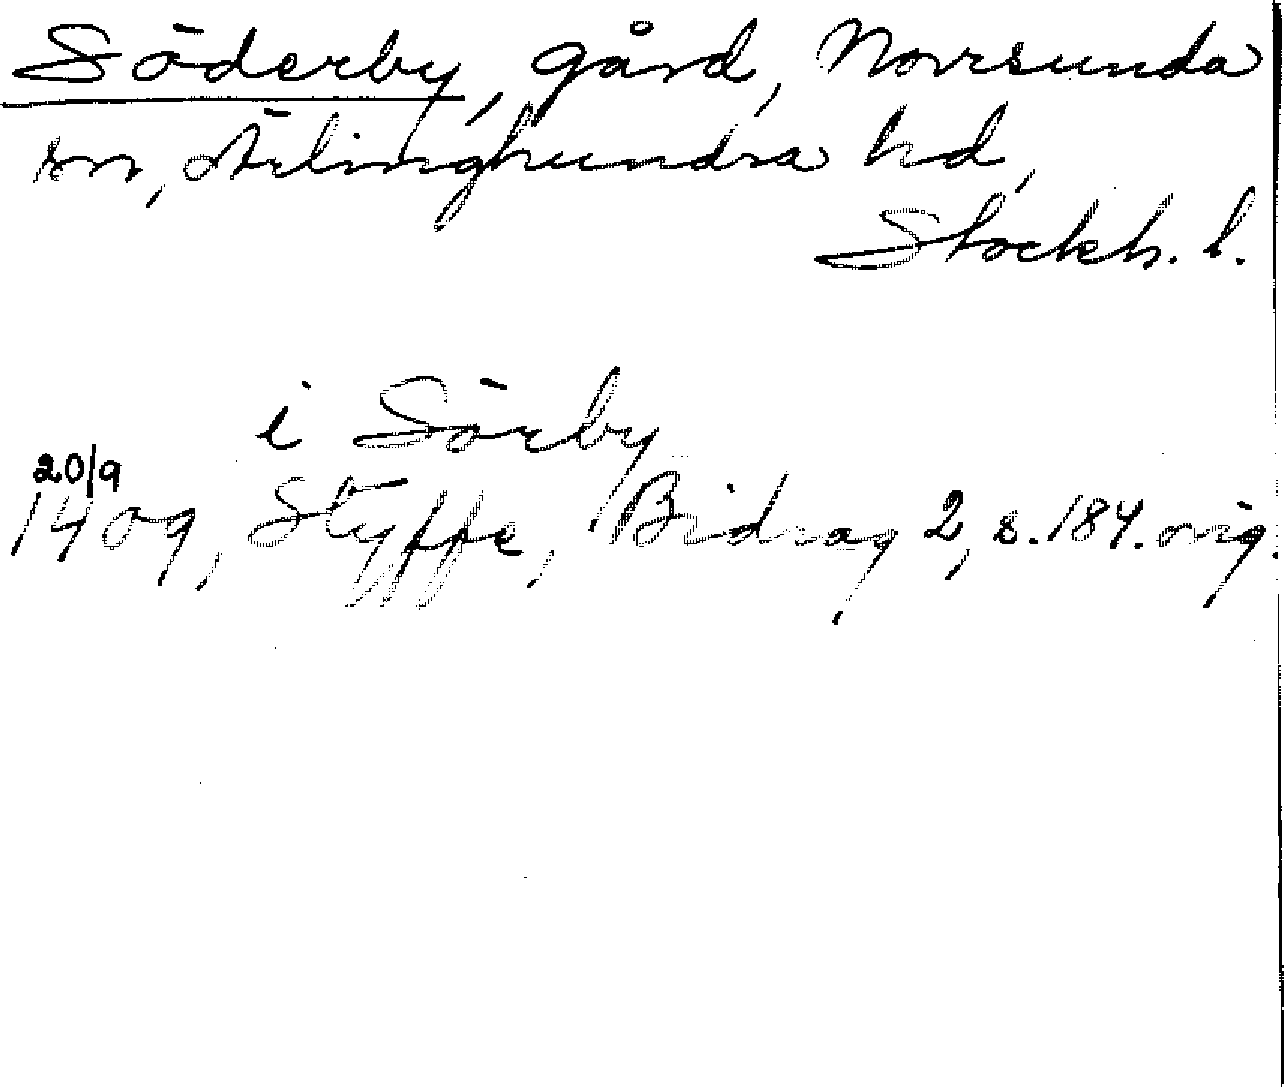 Söderby, gård, Norrsunda
sn, Ärlinghundra hd,
Stockh. l.
i Sörby
20/9
1409, Styffe, Bidrag 2, s. 184. orig.